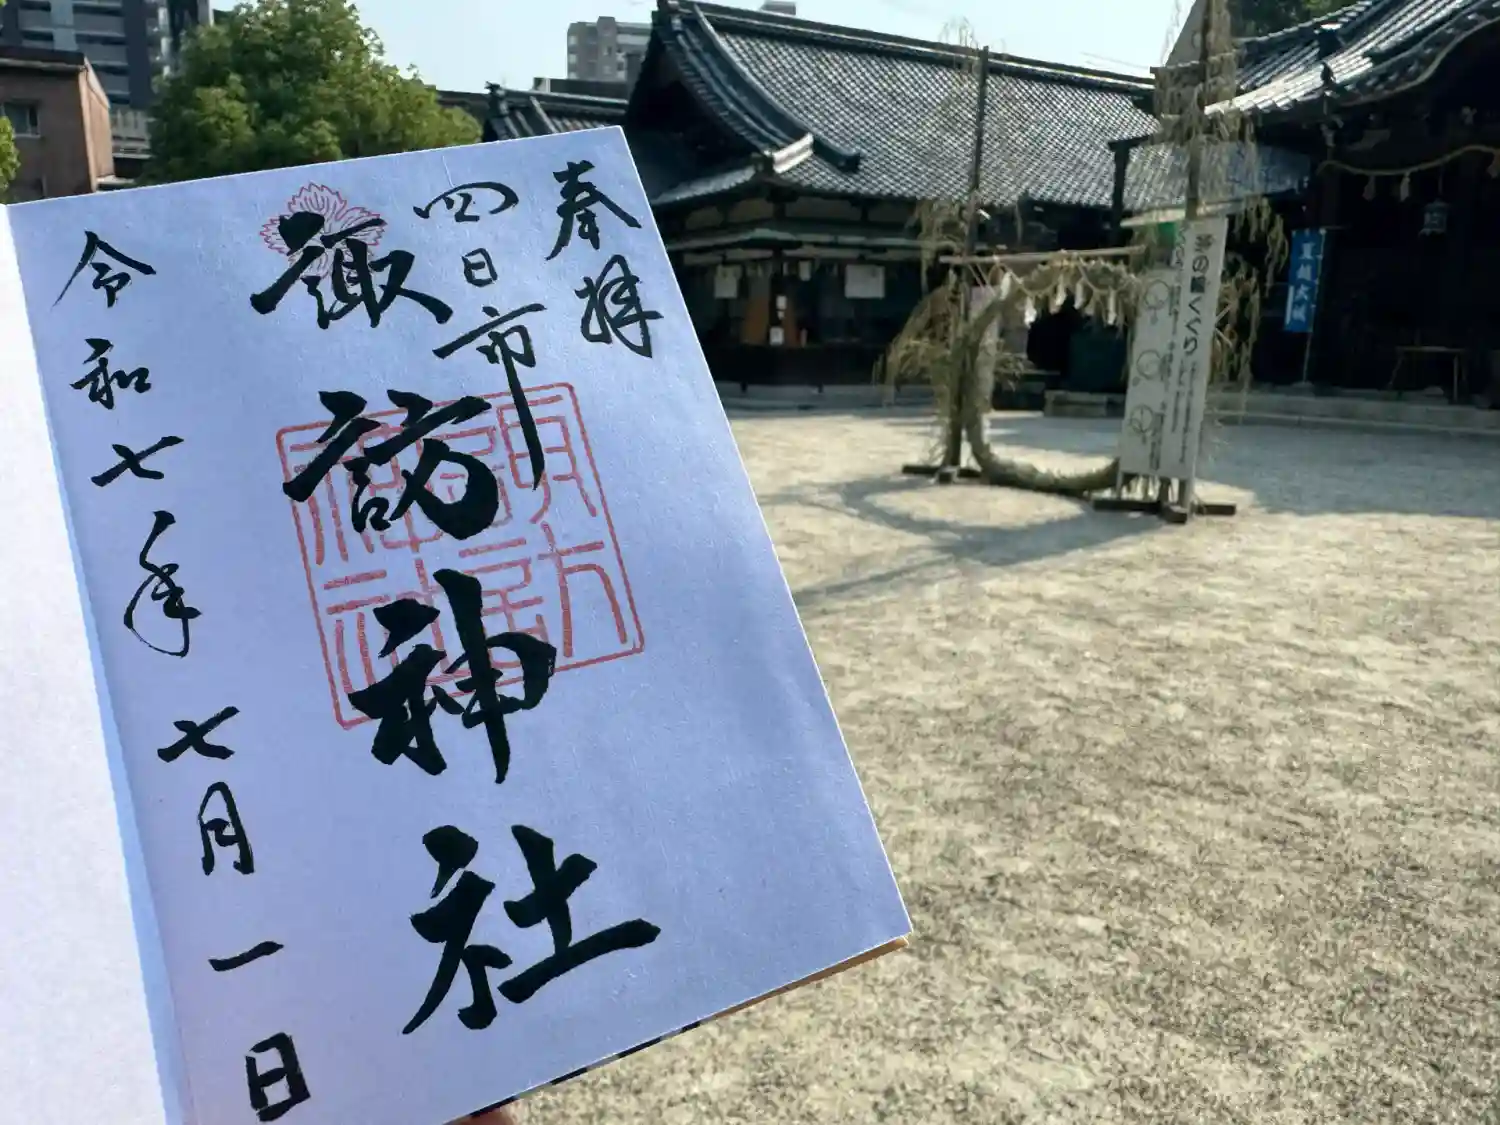 奉拝
四日市
諏訪神社
令和七年七月一日
茅の輪くぐり
夏越大祓